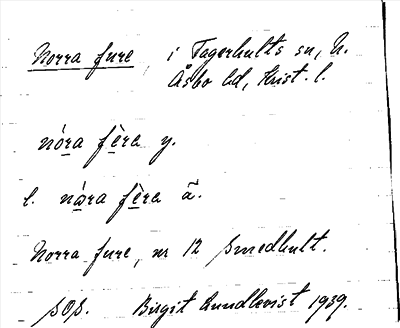 Norra fure, i Tågerhults sn, N.
Åsbo hd, Krist. l.
nóra fẹ̀ra y.
l. nàra fẹ̀ra ã.
Norra fure, nr 12 Smedhult.
SOS. Birgit Lundkvist 1939.